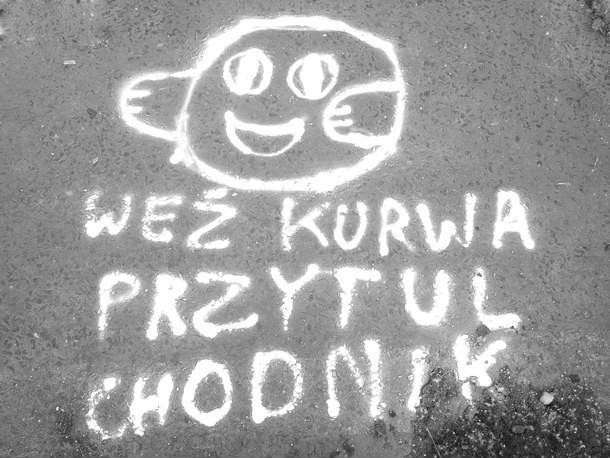 WEŹ KURWA
PRZYTUL
CHODNIK